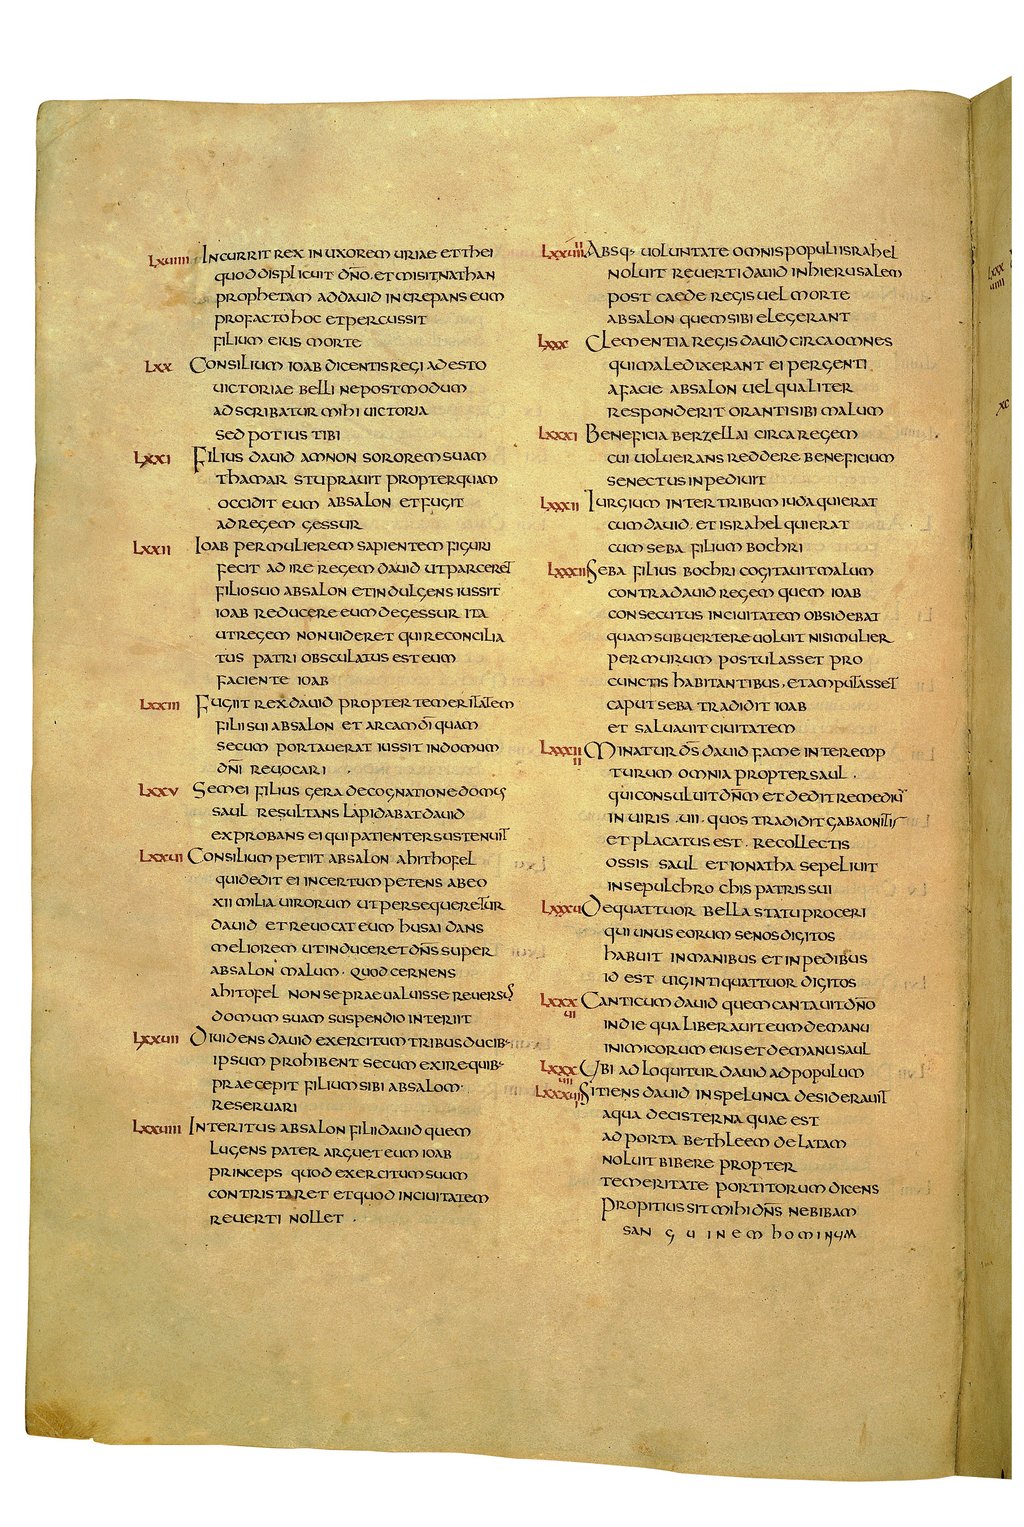 LXVIIII INCURRIT REX IN UXOREM URIAE ETTHEI
QUOD DISPLICUIT DÑO. ET MISIT NATHAN
PROPHETAM AD DAUID INCREPANS EUM
PRO FACTO HOC ET PERCUSSIT
FILIUM EIUS MORTE
LXX CONSILIUM IOAB DICENTIS REGI ADESTO
UICTORIAE BELLI NE POSTMODUM
ADSCRIBATUR MIHI UICTORIA
SED POTIUS TIBI
LXXI FILIUS DAUID AMNON SOROREM SUAM
THAMAR STUPRAUIT PROPTER QUAM
OCCIDIT EUM ABSALON ET FUGIT
AD REGEM GESSUR
LXXII IOAB PER MULIEREM SAPIENTEM FIGURI
FECIT AD IRE REGEM DAUID UT PARCERET
FILIO SUO ABSALON ET INDULGENS IUSSIT
IOAB REDUCERE EUM DE GESSUR ITA
UT REGEM NON UIDERET QUI RECONCILIA
TUS PATRI OBSCULATUS EST EUM
FACIENTE IOAB
LXXIII FUGIIT REX DAUID PROPTER TEMERITATEM
FILII SUI ABSALON ET ARCAM DĪ QUAM
SECUM PORTAUERAT IUSSIT IN DOMUM
DÑI REUOCARI .
LXXV SEMEI FILIUS GERA DE COGNATIONE DOMUS
SAUL RESULTANS LAPIDABAT DAUID
EXPROBANS EI QUI PATIENTER SUSTENUIT
LXXVI CONSILIUM PETIIT ABSALON AHITHOFEL
QUI DEDIT EI INCERTUM PETENS AB EO
XII MILIA UIRORUM UT PERSEQUERETUR
DAUID ET REUOCAT EUM HUSAI DANS
MELIOREM UT INDUCERET DÑS SUPER
ABSALON MALUM · QUOD CERNENS
AHITOFEL NON SE PRAEUALUISSE REUERSUS
DOMUM SUAM SUSPENDIO INTERIIT
LXXVII DIUIDENS DAUID EXERCITUM TRIBUS DUCIB·
IPSUM PROHIBENT SECUM EXIRE QUIB·
PRAECEPIT FILIUM SIBI ABSALOM
RESERUARI
LXXVIIII INTERITUS ABSALON FILII DAUID QUEM
LUGENS PATER ARGUET EUM IOAB
PRINCEPS QUOD EXERCITUM SUUM
CONTRISTARET ET QUOD IN CIUITATEM
REUERTI NOLLET .
ABSQ· UOLUNTATE OMNIS POPULI ISRAHEL
NOLUIT REUERTI DAUID IN HIERUSALEM
POST CAEDE REGIS UEL MORTE
ABSALON QUEM SIBI ELEGERANT
LXXX CLEMENTIA REGIS DAUID CIRCA OMNES
QUI MALEDIXERANT EI PERGENTI
A FACIE ABSALON UEL QUALITER
RESPONDERIT ORANTI SIBI MALUM
LXXXI BENEFICIA BERZELLAI CIRCA REGEM
CUI UOLUERANS REDDERE BENEFICIUM
SENECTUS INPEDIUIT
LXXXII IURGIUM INTER TRIBUM IUDA QUI ERAT
CUM DAUID. ET ISRAHEL QUI ERAT
CUM SEBA FILIUM BOCHRI
LXXXIII SEBA FILIUS BOCHRI COGITAUIT MALUM
CONTRA DAUID REGEM QUEM IOAB
CONSECUTUS IN CIUITATEM OBSIDEBAT
QUAM SUBUERTERE UOLUIT NISI MULIER
PER MURUM POSTULASSET PRO
CUNCTIS HABITANTIBUS. ET AMPUTASSET
CAPUT SEBA TRADIDIT IOAB
ET SALUAUIT CIUITATEM
LXXXIIII MINATUR DS̄ DAUID FAME INTEREMP
TURUM OMNIA PROPTER SAUL .
QUI CONSULUIT DÑM ET DEDIT REMEDIŪ
IN UIRIS .UII. QUOS TRADIDIT GABAONITIS
ET PLACATUS EST . RECOLLECTIS
OSSIS SAUL ET IONATHA SEPELIUIT
IN SEPULCHRO CHIS PATRIS SUI
LXXXV DE QUATTUOR BELLA STATU PROCERI
QUI UNUS EORUM SENOS DIGITOS
HABUIT IN MANIBUS ET IN PEDIBUS
ID EST UIGINTI QUATTUOR DIGITOS
LXXXVI CANTICUM DAUID QUEM CANTAUIT DÑO
IN DIE QUA LIBERAUIT EUM DE MANU
INIMICORUM EIUS ET DE MANU SAUL
UBI ADLOQUITUR DAUID AD POPULUM
SITIENS DAUID IN SPELUNCA DESIDERAUIT
AQUA DE CISTERNA QUAE EST
AD PORTA BETHLEEM DELATAM
NOLUIT BIBERE PROPTER
TEMERITATE PORTITORUM DICENS
PROPITIUS SIT MIHI DÑS NE BIBAM
SANGUINEM HOMINUM